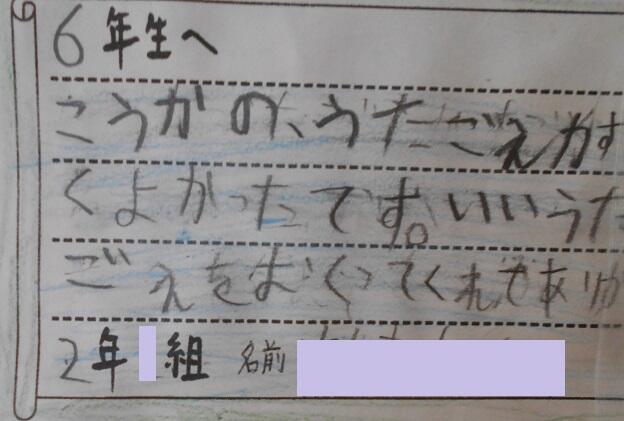 6年生へ
こうかの、うたごえがす
くよかったです。いいうた
ごえをおくってくれてあり
2年 組 名前